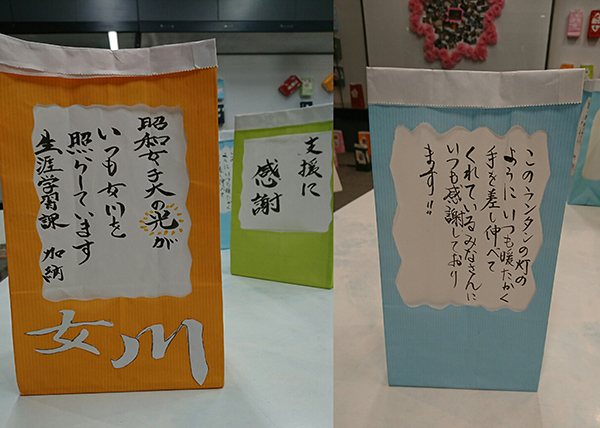 昭和女子大の光が
いつも女川を
照らしています
生涯学習課 加納
女川
支援に
感謝
このランタンの灯の
ように いつも暖たかく
手を差し伸べて
くれているみなさんに
いつも感謝しており
ます!!